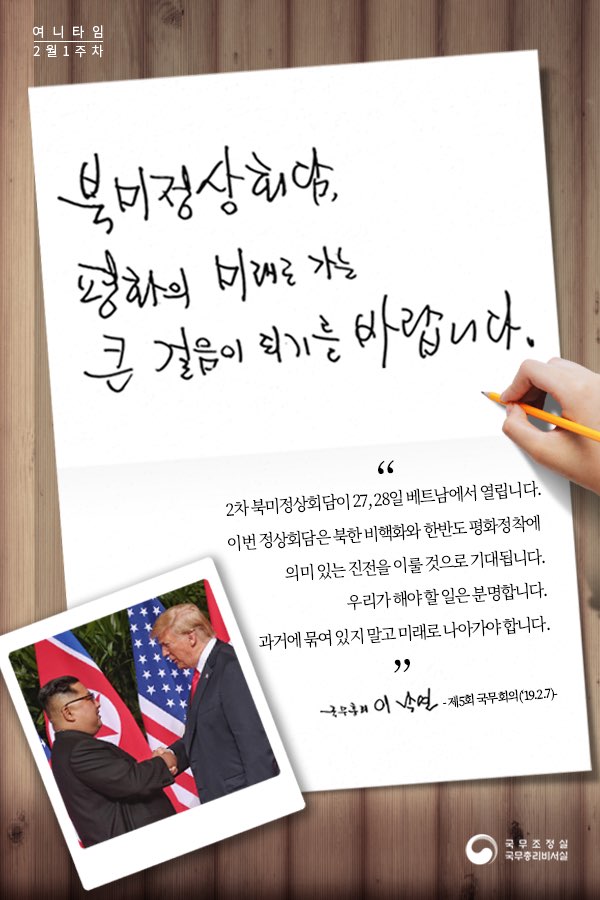 여니타임
2월1주차
북미정상회담,
평화의 미래로 가는
큰 걸음이 되기를 바랍니다.
“
2차 북미정상회담이 27, 28일 베트남에서 열립니다.
이번 정상회담은 북한 비핵화와 한반도 평화정착에
의미 있는 진전을 이룰 것으로 기대됩니다.
우리가 해야 할 일은 분명합니다.
과거에 묶여 있지 말고 미래로 나아가야 합니다.
”
국무총리 이낙연 - 제5회 국무회의('19.2.7)-
국무조정실
국무총리비서실